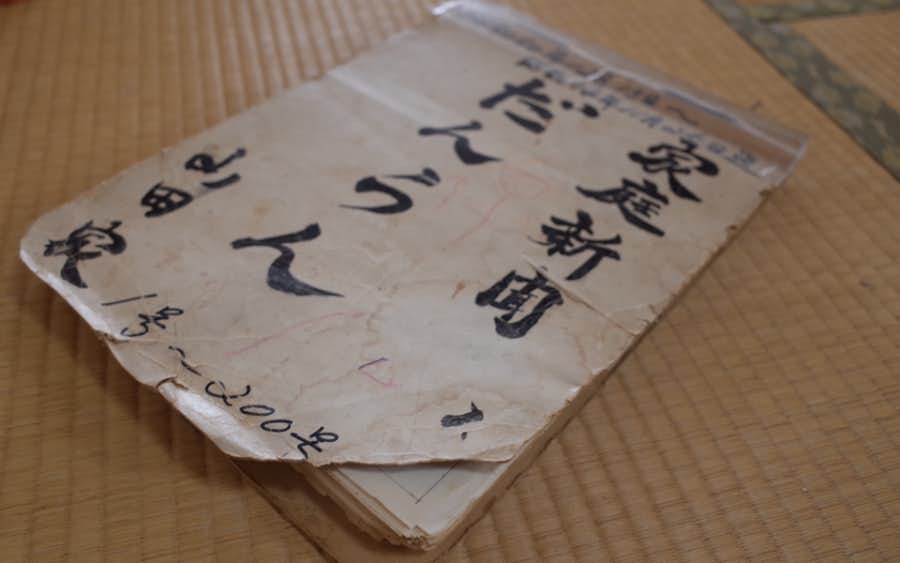 家庭新聞
だんらん
山田家
1号~200号
1.